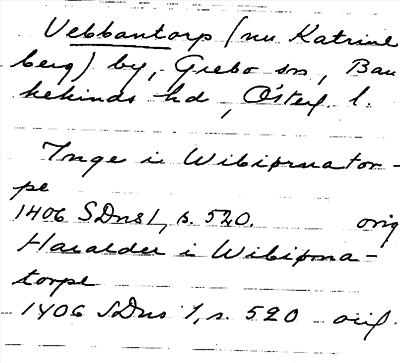 Vebbantorp (nu Katrine
berg) by, Grebo sn, Ban
kekinds hd, Österg. l.
Inge i Wibiprnator-
pe
1406 SDns 1, s. 520. orig
Haralder i Wibiprna-
torpe
1406 SDns 1, s. 520 orig.